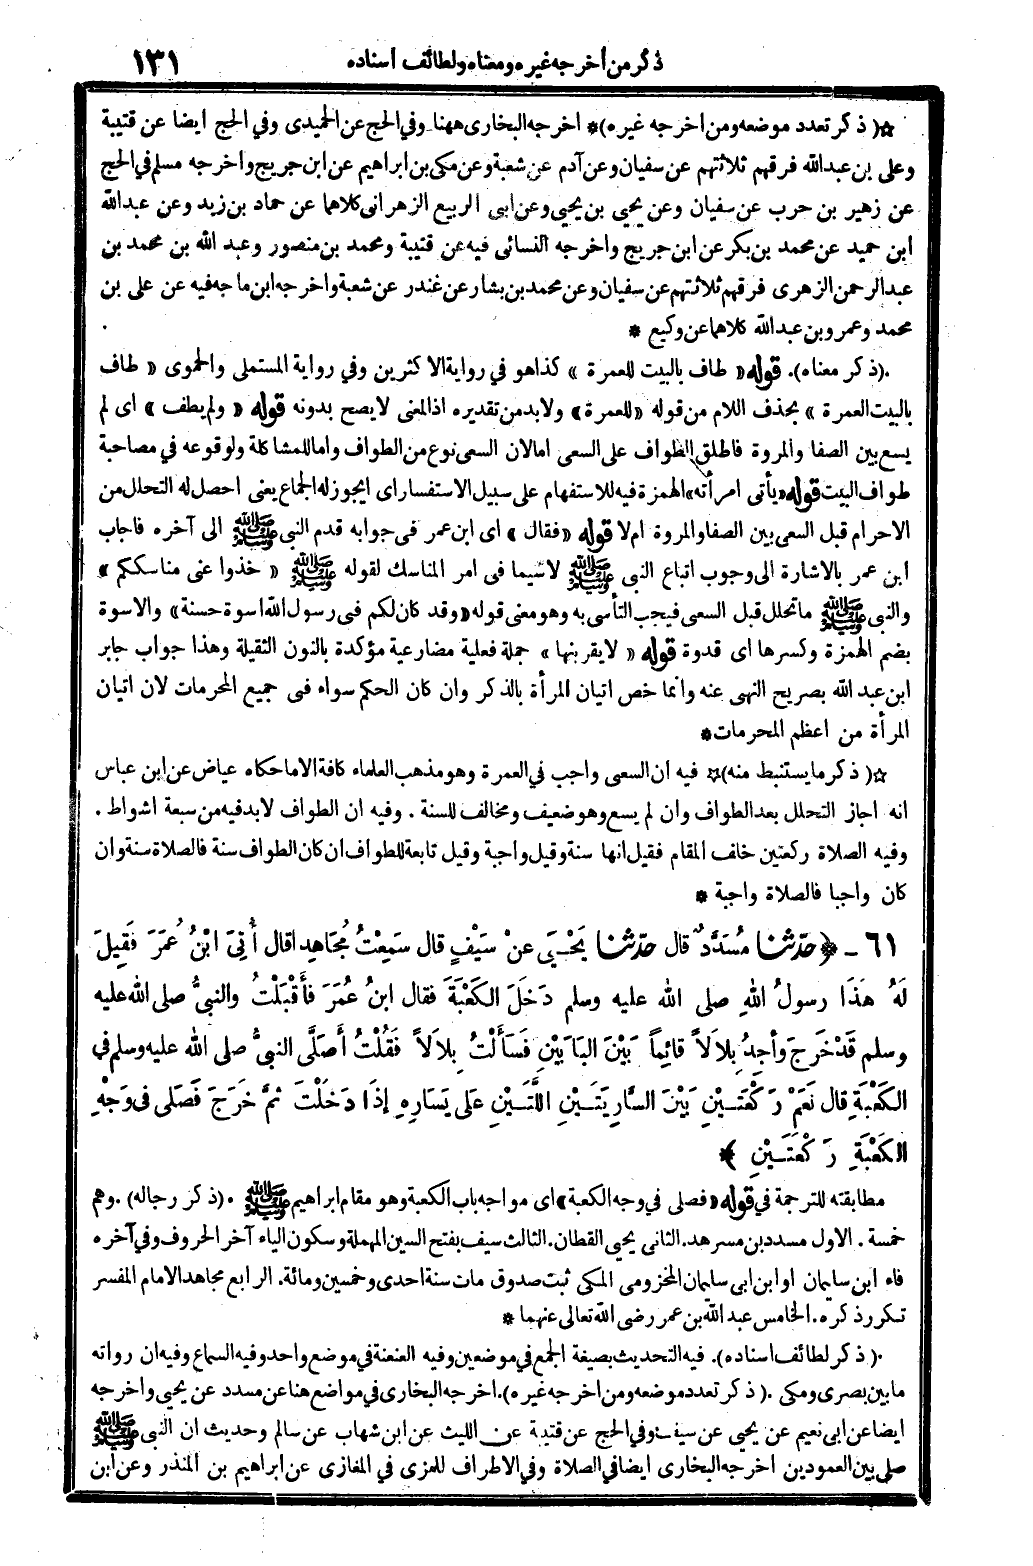 ذكر من أخرجه غيره ومعناه ولطائف اسناده ١٣١
☆( ذكر تعدد موضعه ومن اخرجه غيره )* اخرجه البخارى ههنا وفي الحج عن الحميدى وفي الحج ايضا عن قتيبة
وعلى بن عبدالله فرقهم ثلاثتهم عن سفيان وعن آدم عن شعبة وعن مكى بن ابراهيم عن ابن جريج واخرجه مسلم في الحج
عن زهير بن حرب عن سفيان وعن يحيى بن يحيى وعن ابى الربيع الزهرانى كلاهما عن حماد بن زيد وعن عبدالله
ابن حميد عن محمد بن بكر عن ابن جريج واخرجه النسائى فيه عن قتيبة ومحمد بن منصور وعبد الله بن محمد بن
عبدالرحمن الزهرى فرقهم ثلاثتهم عن سفيان وعن محمد بن بشار عن غندر عن شعبة واخرجه ابن ماجه فيه عن على بن
محمد وعمرو بن عبدالله كلاهما عن وكيع *
.(ذكر معناه). قوله « طاف بالبيت للعمرة » كذا هو في رواية الاكثرين وفي رواية المستملى والحموى « طاف
بالبيت العمرة » بحذف اللام من قوله «للعمرة» ولابد من تقديره اذ المعنى لا يصح بدونه قوله « ولم يطف » اى لم
يسع بين الصفا والمروة فاطلق الطواف على السعى امالان السعى نوع من الطواف واما للمشاكلة ولوقوعه في مصاحبة
طواف البيت قوله «يأتى امرأته» الهمزة فيه للاستفهام على سبيل الاستفسار اى ايجوز له الجماع يعنى احصل له التحلل من
الاحرام قبل السعى بين الصفا والمروة ام لا قوله «فقال» اى ابن عمر فى جوابه قدم النبى ﷺ الى آخره فاجاب
ابن عمر بالاشارة الى وجوب اتباع النبى ﷺ لاسيما فى امر المناسك لقوله ﷺ « خذوا عنى مناسككم »
والنبى ﷺ ما تحلل قبل السعى فيجب التأسى به وهو معنى قوله «وقد كان لكم فى رسول الله اسوة حسنة» والاسوة
بضم الهمزة وكسرها اى قدوة قوله « لا يقربنها » جملة فعلية مضارعية مؤكدة بالنون الثقيلة وهذا جواب جابر
ابن عبد الله بصريح النهى عنه وانما خص اتيان المرأة بالذكر وان كان الحكم سواء فى جميع المحرمات لان اتيان
المرأة من اعظم المحرمات *
☆( ذكر ما يستنبط منه )☆ فيه ان السعى واجب في العمرة وهو مذهب العلماء كافة الا ما حكاه عياض عن ابن عباس
انه اجاز التحلل بعد الطواف وان لم يسع وهو ضعيف ومخالف للسنة . وفيه ان الطواف لابد فيه من سبعة اشواط .
وفيه الصلاة ركعتين خلف المقام فقيل انها سنة وقيل واجبة وقيل تابعة للطواف ان كان الطواف سنة فالصلاة سنة وان
كان واجبا فالصلاة واجبة *
٦١ - ﴿ حدثنا مُسَدَّدٌ قال حدثنا يَحْيَى عنْ سَيْفٍ قال سَمِعْتُ مُجَاهِدًا قال أُتِيَ ابْنُ عُمَرَ فَقِيلَ
لَهُ هَذَا رسولُ اللهِ صلى الله عليه وسلم دَخَلَ الكَعْبَةَ فقال ابنُ عُمَرَ فأَقْبَلْتُ والنبيُّ صلى الله عليه
وسلم قَدْ خَرَجَ وأَجِدُ بِلاَلاً قائِماً بَيْنَ البَابَيْنِ فَسَأَلْتُ بِلاَلاً فَقُلْتُ أَصَلَّى النبيُّ صلى الله عليه وسلم في
الكَعْبَةِ قال نَعَمْ رَكْعَتَيْنِ بَيْنَ السَّارِيَتَيْنِ اللَّتَيْنِ عَلَى يَسَارِهِ إِذَا دَخَلْتَ ثمَّ خَرَجَ فَصَلَّى فى وَجْهِ
الكَعْبَةِ رَكْعَتَيْنِ ﴾*
مطابقته للترجمة في قوله «فصلى في وجه الكعبة» اى مواجه باب الكعبة وهو مقام ابراهيم ﷺ .(ذكر رجاله). وهم
خمسة . الاول مسدد بن مسرهد. الثانى يحيى القطان. الثالث سيف بفتح السين المهملة وسكون الياء آخر الحروف وفي آخره
فاء ابن سليمان او ابن ابى سليمان المخزومى المكى ثبت صدوق مات سنة احدى وخمسين ومائة. الرابع مجاهد الامام المفسر
تكرر ذكره. الخامس عبد الله بن عمر رضى الله تعالى عنهما *
.( ذكر لطائف اسناده ). فيه التحديث بصيغة الجمع في موضعين وفيه العنعنة في موضع واحد وفيه السماع وفيه ان رواته
ما بين بصرى ومكى .( ذكر تعدد موضعه ومن اخرجه غيره ). اخرجه البخارى في مواضع هنا عن مسدد عن يحيى واخرجه
ايضا عن ابى نعيم عن يحيى عن سيف وفي الحج عن قتيبة عن الليث عن ابن شهاب عن سالم وحديث ان النبى ﷺ
صلى بين العمودين اخرجه البخارى ايضا في الصلاة وفي الاطراف للمزى في المغازى عن ابراهيم بن المنذر وعن ابن